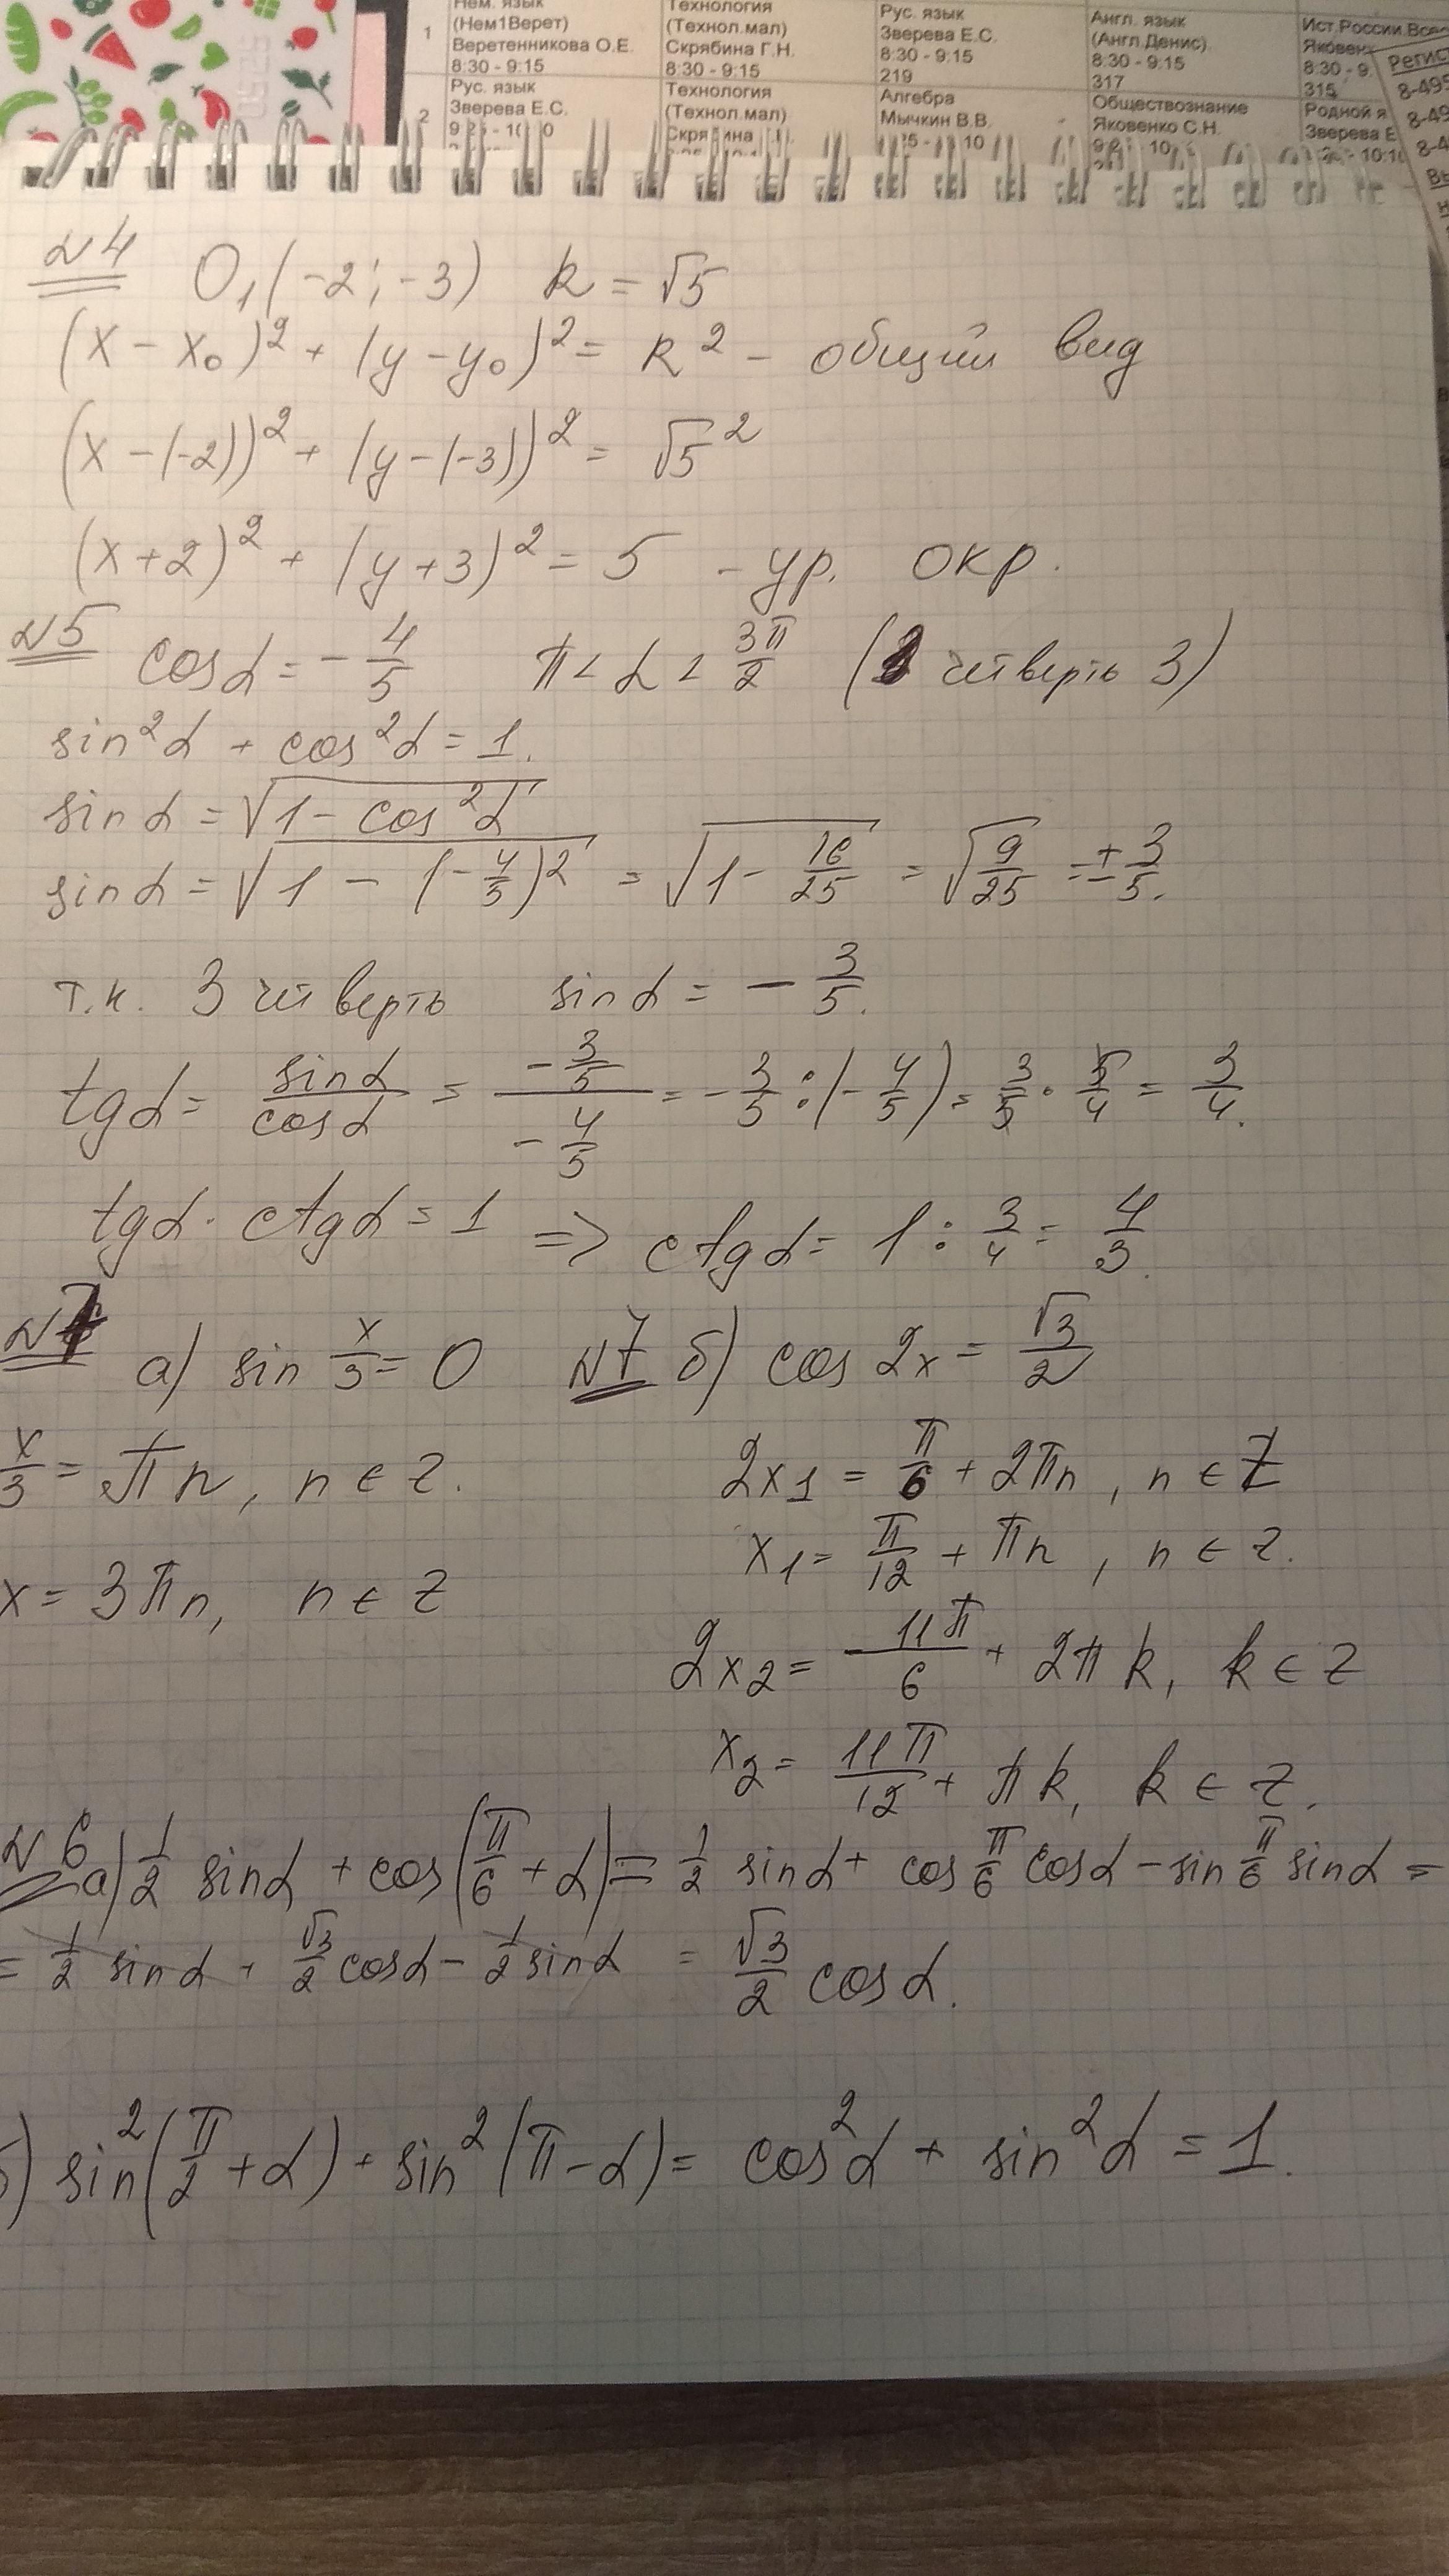 1
Нем. язык
(Нем1Верет)
Веретенникова О.Е.
8:30 - 9:15
Технология
(Технол.мал)
Скрябина Г.Н.
8:30 - 9:15
Рус. язык
Зверева Е.С.
8:30 - 9:15
219
Англ. язык
(Англ.Денис)
8:30 - 9:15
317
Ист.России.Все
Яковен
8:30 - 9:
315
2
Рус. язык
Зверева Е.С.
Технология
(Технол.мал)
Алгебра
Мычкин В.В.
Обществознание
Яковенко С.Н.
Родной я
Зверева Е
- 10:10
РЕГИС
8-495
8-49
8-4
N4 O₁(-2; -3) R = √5
(x - x₀)² + (y - y₀)² = R² - общий вид
(x - (-2))² + (y - (-3))² = √5²
(x + 2)² + (y + 3)² = 5 - ур. окр.
N5 cosα = -4/5 π < α < 3π/2 (четверть 3)
sin²α + cos²α = 1.
sinα = √(1 - cos²α)
sinα = √(1 - (-4/5)²) = √(1 - 16/25) = √(9/25) = ±3/5.
т.к. 3 четверть sinα = -3/5.
tgα = sinα/cosα = (-3/5)/(-4/5) = -3/5 : (-4/5) = 3/5 · 5/4 = 3/4.
tgα · ctgα = 1 => ctgα = 1 : 3/4 = 4/3.
N7 а) sin x/3 = 0 N7 б) cos 2x = √3/2
x/3 = πn, n ∈ Z.
x = 3πn, n ∈ Z
2x₁ = π/6 + 2πn, n ∈ Z
x₁ = π/12 + πn, n ∈ Z.
2x₂ = 11π/6 + 2πk, k ∈ Z
x₂ = 11π/12 + πk, k ∈ Z.
N6 а) 1/2 sinα + cos(π/6 + α) = 1/2 sinα + cos π/6 cosα - sin π/6 sinα =
= 1/2 sinα + √3/2 cosα - 1/2 sinα = √3/2 cosα.
б) sin²(π/2 + α) + sin²(π - α) = cos²α + sin²α = 1.